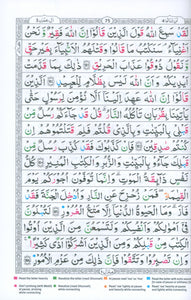 لن تنالوا ٤ 75 آل عمران ٣
لَقَدْ سَمِعَ اللّٰهُ قَوْلَ الَّذِيْنَ قَالُوْۤا اِنَّ اللّٰهَ فَقِيْرٌ وَّنَحْنُ
اَغْنِيَآءُ سَنَكْتُبُ مَا قَالُوْا وَقَتْلَهُمُ الْاَنْۢبِيَآءَ بِغَيْرِ حَقٍّ
وَّنَقُوْلُ ذُوْقُوْا عَذَابَ الْحَرِيْقِ ذٰلِكَ بِمَا قَدَّمَتْ
اَيْدِيْكُمْ وَاَنَّ اللّٰهَ لَيْسَ بِظَلَّامٍ لِّلْعَبِيْدِ اَلَّذِيْنَ
قَالُوْۤا اِنَّ اللّٰهَ عَهِدَ اِلَيْنَاۤ اَلَّا نُؤْمِنَ لِرَسُوْلٍ حَتّٰى
يَاْتِيَنَا بِقُرْبَانٍ تَاْكُلُهُ النَّارُ قُلْ قَدْ جَآءَكُمْ رُسُلٌ مِّنْ
قَبْلِيْ بِالْبَيِّنٰتِ وَبِالَّذِيْ قُلْتُمْ فَلِمَ قَتَلْتُمُوْهُمْ اِنْ
كُنْتُمْ صٰدِقِيْنَ فَاِنْ كَذَّبُوْكَ فَقَدْ كُذِّبَ رُسُلٌ مِّنْ
قَبْلِكَ جَآءُوْ بِالْبَيِّنٰتِ وَالزُّبُرِ وَالْكِتٰبِ الْمُنِيْرِ كُلُّ
نَفْسٍ ذَآئِقَةُ الْمَوْتِ وَاِنَّمَا تُوَفَّوْنَ اُجُوْرَكُمْ يَوْمَ
الْقِيٰمَةِ فَمَنْ زُحْزِحَ عَنِ النَّارِ وَاُدْخِلَ الْجَنَّةَ فَقَدْ
فَازَ وَمَا الْحَيٰوةُ الدُّنْيَاۤ اِلَّا مَتَاعُ الْغُرُوْرِ لَتُبْلَوُنَّ
فِيْۤ اَمْوَالِكُمْ وَاَنْفُسِكُمْ وَلَتَسْمَعُنَّ مِنَ الَّذِيْنَ اُوْتُوا
الْكِتٰبَ مِنْ قَبْلِكُمْ وَمِنَ الَّذِيْنَ اَشْرَكُوْۤا اَذًى كَثِيْرًا
وَاِنْ تَصْبِرُوْا وَتَتَّقُوْا فَاِنَّ ذٰلِكَ مِنْ عَزْمِ الْاُمُوْرِ